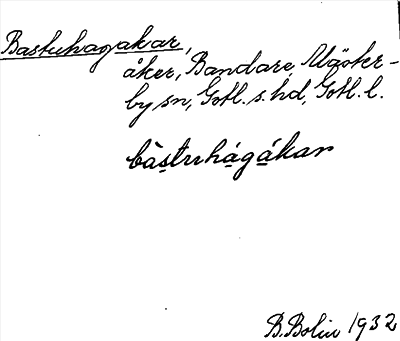 Bastuhagakar,
åker, Bandare, Mäster-
by sn, Gotl. s. hd, Gotl. l.
bàstuhágákar
B. Bolin 1932